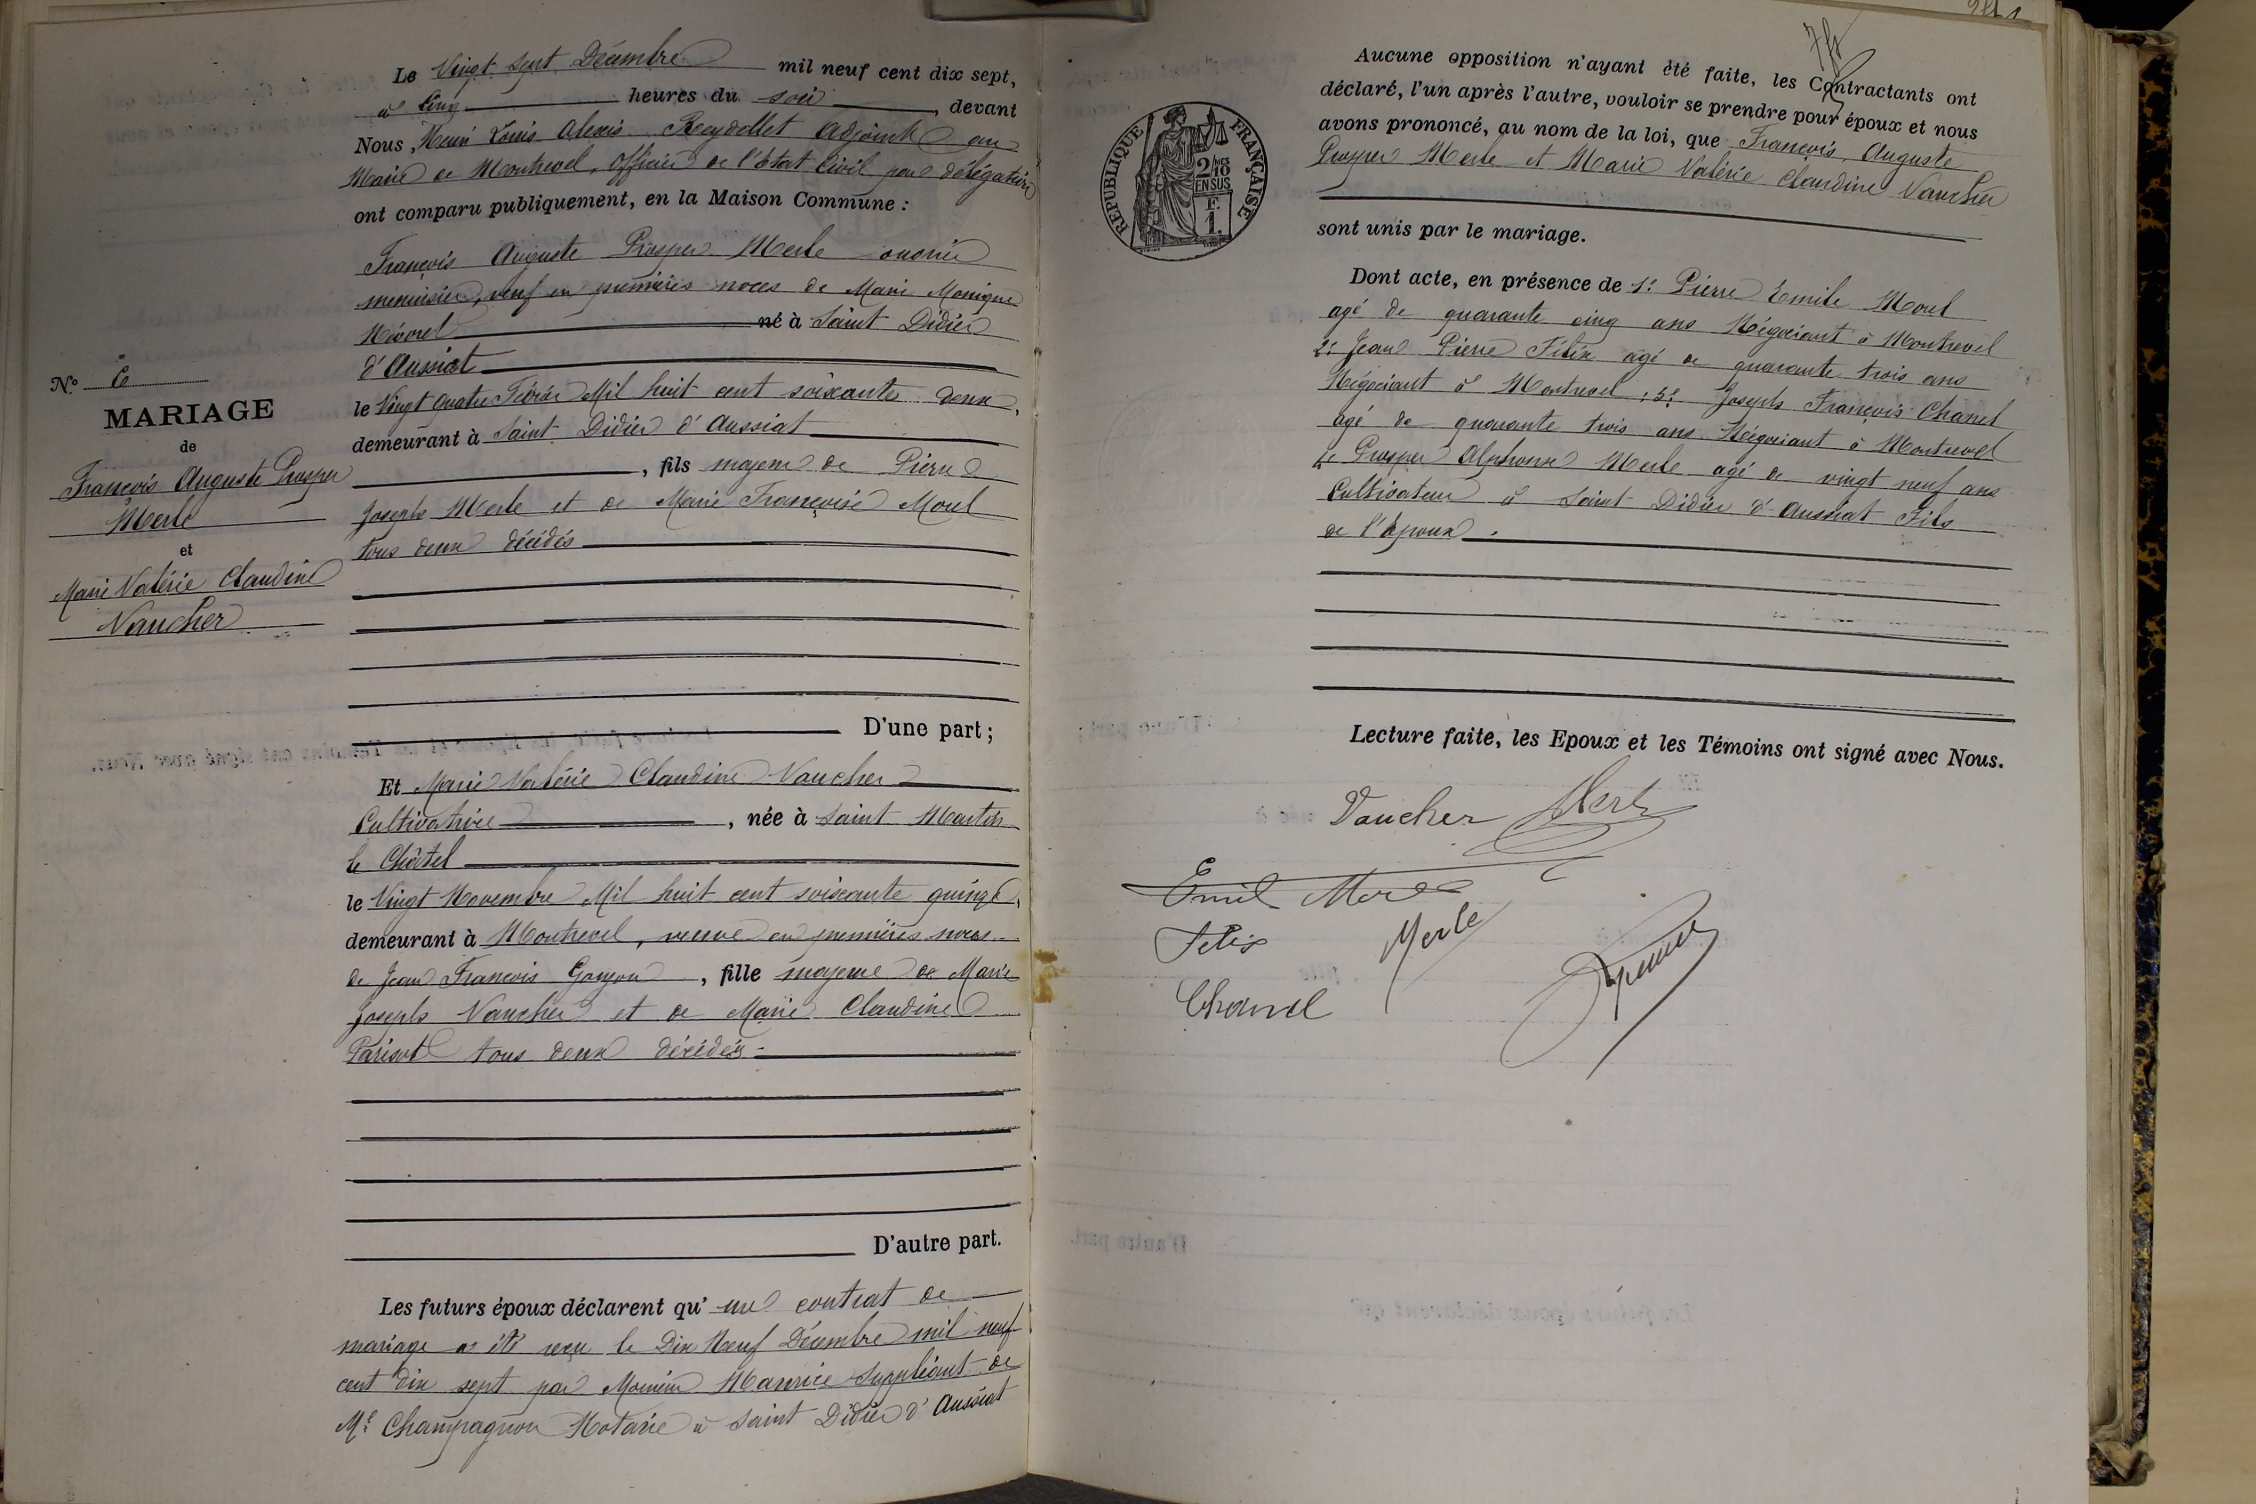 Le Vingt sept Décembre mil neuf cent dix sept,
à Cinq heures du soir, devant
Nous, Henri Louis Alexis Reydellet Adjoint au
Maire de Montrevel, Officier de l'Etat Civil par délégation
ont comparu publiquement, en la Maison Commune :
François Auguste Prosper Merle ouvrier
menuisier, veuf en premières noces de Marie Monique
né à Saint Didier
d'Aussiat
le Vingt quatre Février Mil huit cent soixante deux,
demeurant à Saint Didier d'Aussiat
, fils majeur de Pierre
Joseph Merle et de Marie Françoise Morel
tous deux décédés
D'une part ;
N.°
MARIAGE
de
François Auguste Prosper
Merle
et
Marie Valérie Claudine
Vaucher
Et Marie Valérie Claudine Vaucher
Cultivatrice, née à Saint Martin
le Châtel
le Vingt Novembre Mil huit cent soixante quinze,
demeurant à Montrevel, veuve en premières noces
de Jean François Gonyon, fille majeure de Marie
Joseph Vaucher et de Marie Claudine
Parisot tous deux décédés
D'autre part.
Les futurs époux déclarent qu'un contrat de
mariage a été reçu le Dix Neuf Décembre mil neuf
cent dix sept par Maurice suppléant de
Me Champagnon Notaire à Saint Didier d'Aussiat
Aucune opposition n'ayant été faite, les Contractants ont
déclaré, l'un après l'autre, vouloir se prendre pour époux et nous
avons prononcé, au nom de la loi, que François Auguste
Prosper Merle et Marie Valérie Claudine Vaucher
sont unis par le mariage.
REPUBLIQUE FRANÇAISE
2/10
EN SUS
F.
1.
Dont acte, en présence de 1° Pierre Emile Morel
agé de quarante cinq ans Négociant à Montrevel
2° Jean Pierre Félix agé de quarante trois ans
Négociant à Montrevel, 3° Joseph François Chanel
agé de quarante trois ans Négociant à Montrevel
4° Prosper Alphonse Merle agé de vingt neuf ans
Cultivateur à Saint Didier d'Aussiat Fils
de l'époux.
Lecture faite, les Epoux et les Témoins ont signé avec Nous.
Vaucher Merle
Emile Morel
Félix Merle
Chanel